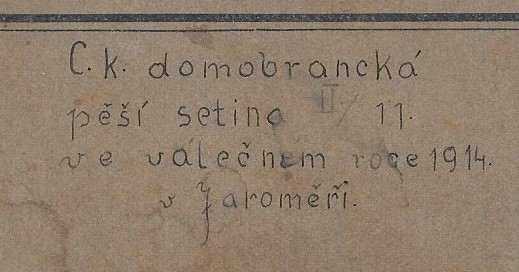 C. k. domobrancká
pěší setina II/11.
ve válečném roce 1914.
v Jaroměři.